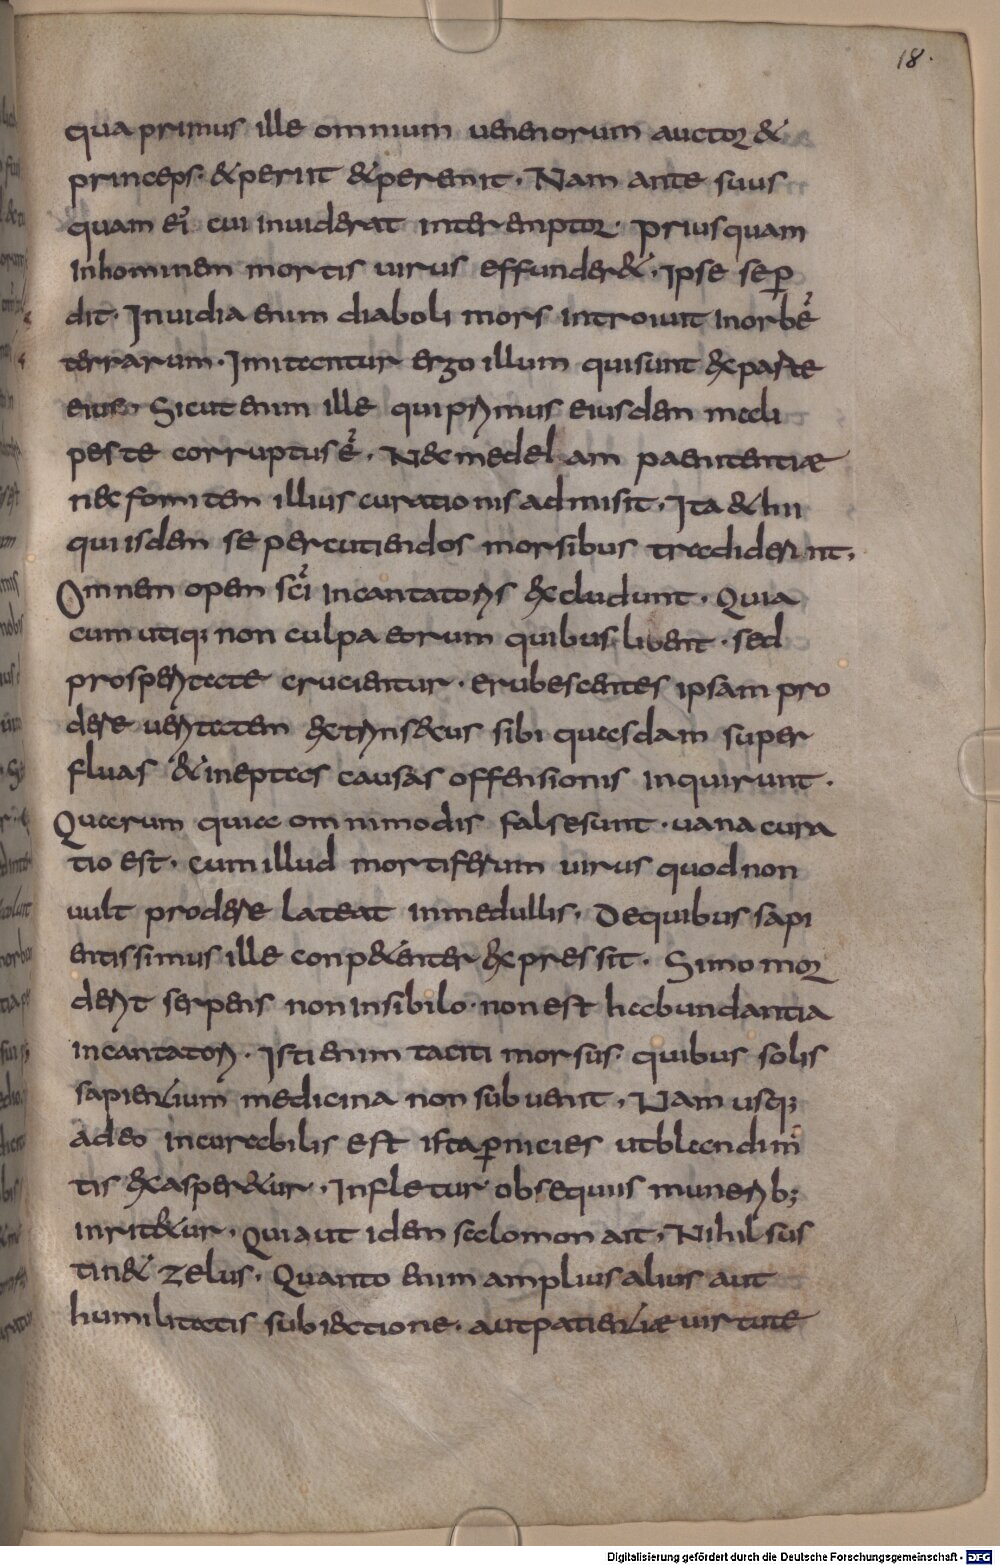 18.
qua primus ille omnium uenenorum auctor &
princeps. & periit & peremit. Nam ante suus
quam eī cui inuiderat interemptor. priusquam
inhominem mortis uirus effunder&. ipse sep̱
dit. Inuidia enim diaboli mors introiuit inorbē
terrarum. Imitentur ergo illum quisunt experte
eius. Sicut enim ille quiprimus eiusdem modi
peste corruptus ē. Nec medelam paenitentiae
nec fomitem illius curationis admisit. Ita & hii
qui isdem se percutiendos morsibus tradiderint.
Omnem opem scī incantatoris excludunt. Quia
cum utiq; non culpa eorum quibus libent. sed
prosperitate crucientur. erubescentes ipsam pro
dere ueritatem extrinsecus sibi quasdam super
fluas & ineptas causas offensionis inquirunt.
Quarum quia omnimodis falsesunt. uana cura
tio est. cum illud mortiferum uirus quod non
uult prodere lateat inmedullis. Dequibus sapi
entissimus ille conpetenter expressit. Si momor
derit serpens non insibilo. non est habundantia
incantatori. Isti enim taciti morsus. quibus solis
sapientium medicina non subuenit. Nam usq;
adeo incurabilis est ista p̱nicies ut blandim̄
tis exasper&ur. Infletur obsequiis munerib;
inrit&ur. Quia ut idem salomon ait. Nihil sus
tin& zelus. Quanto enim amplius alius aut
humilitatis subiectione. aut patientiae uirtute
Digitalisierung gefördert durch die Deutsche Forschungsgemeinschaft - DFG